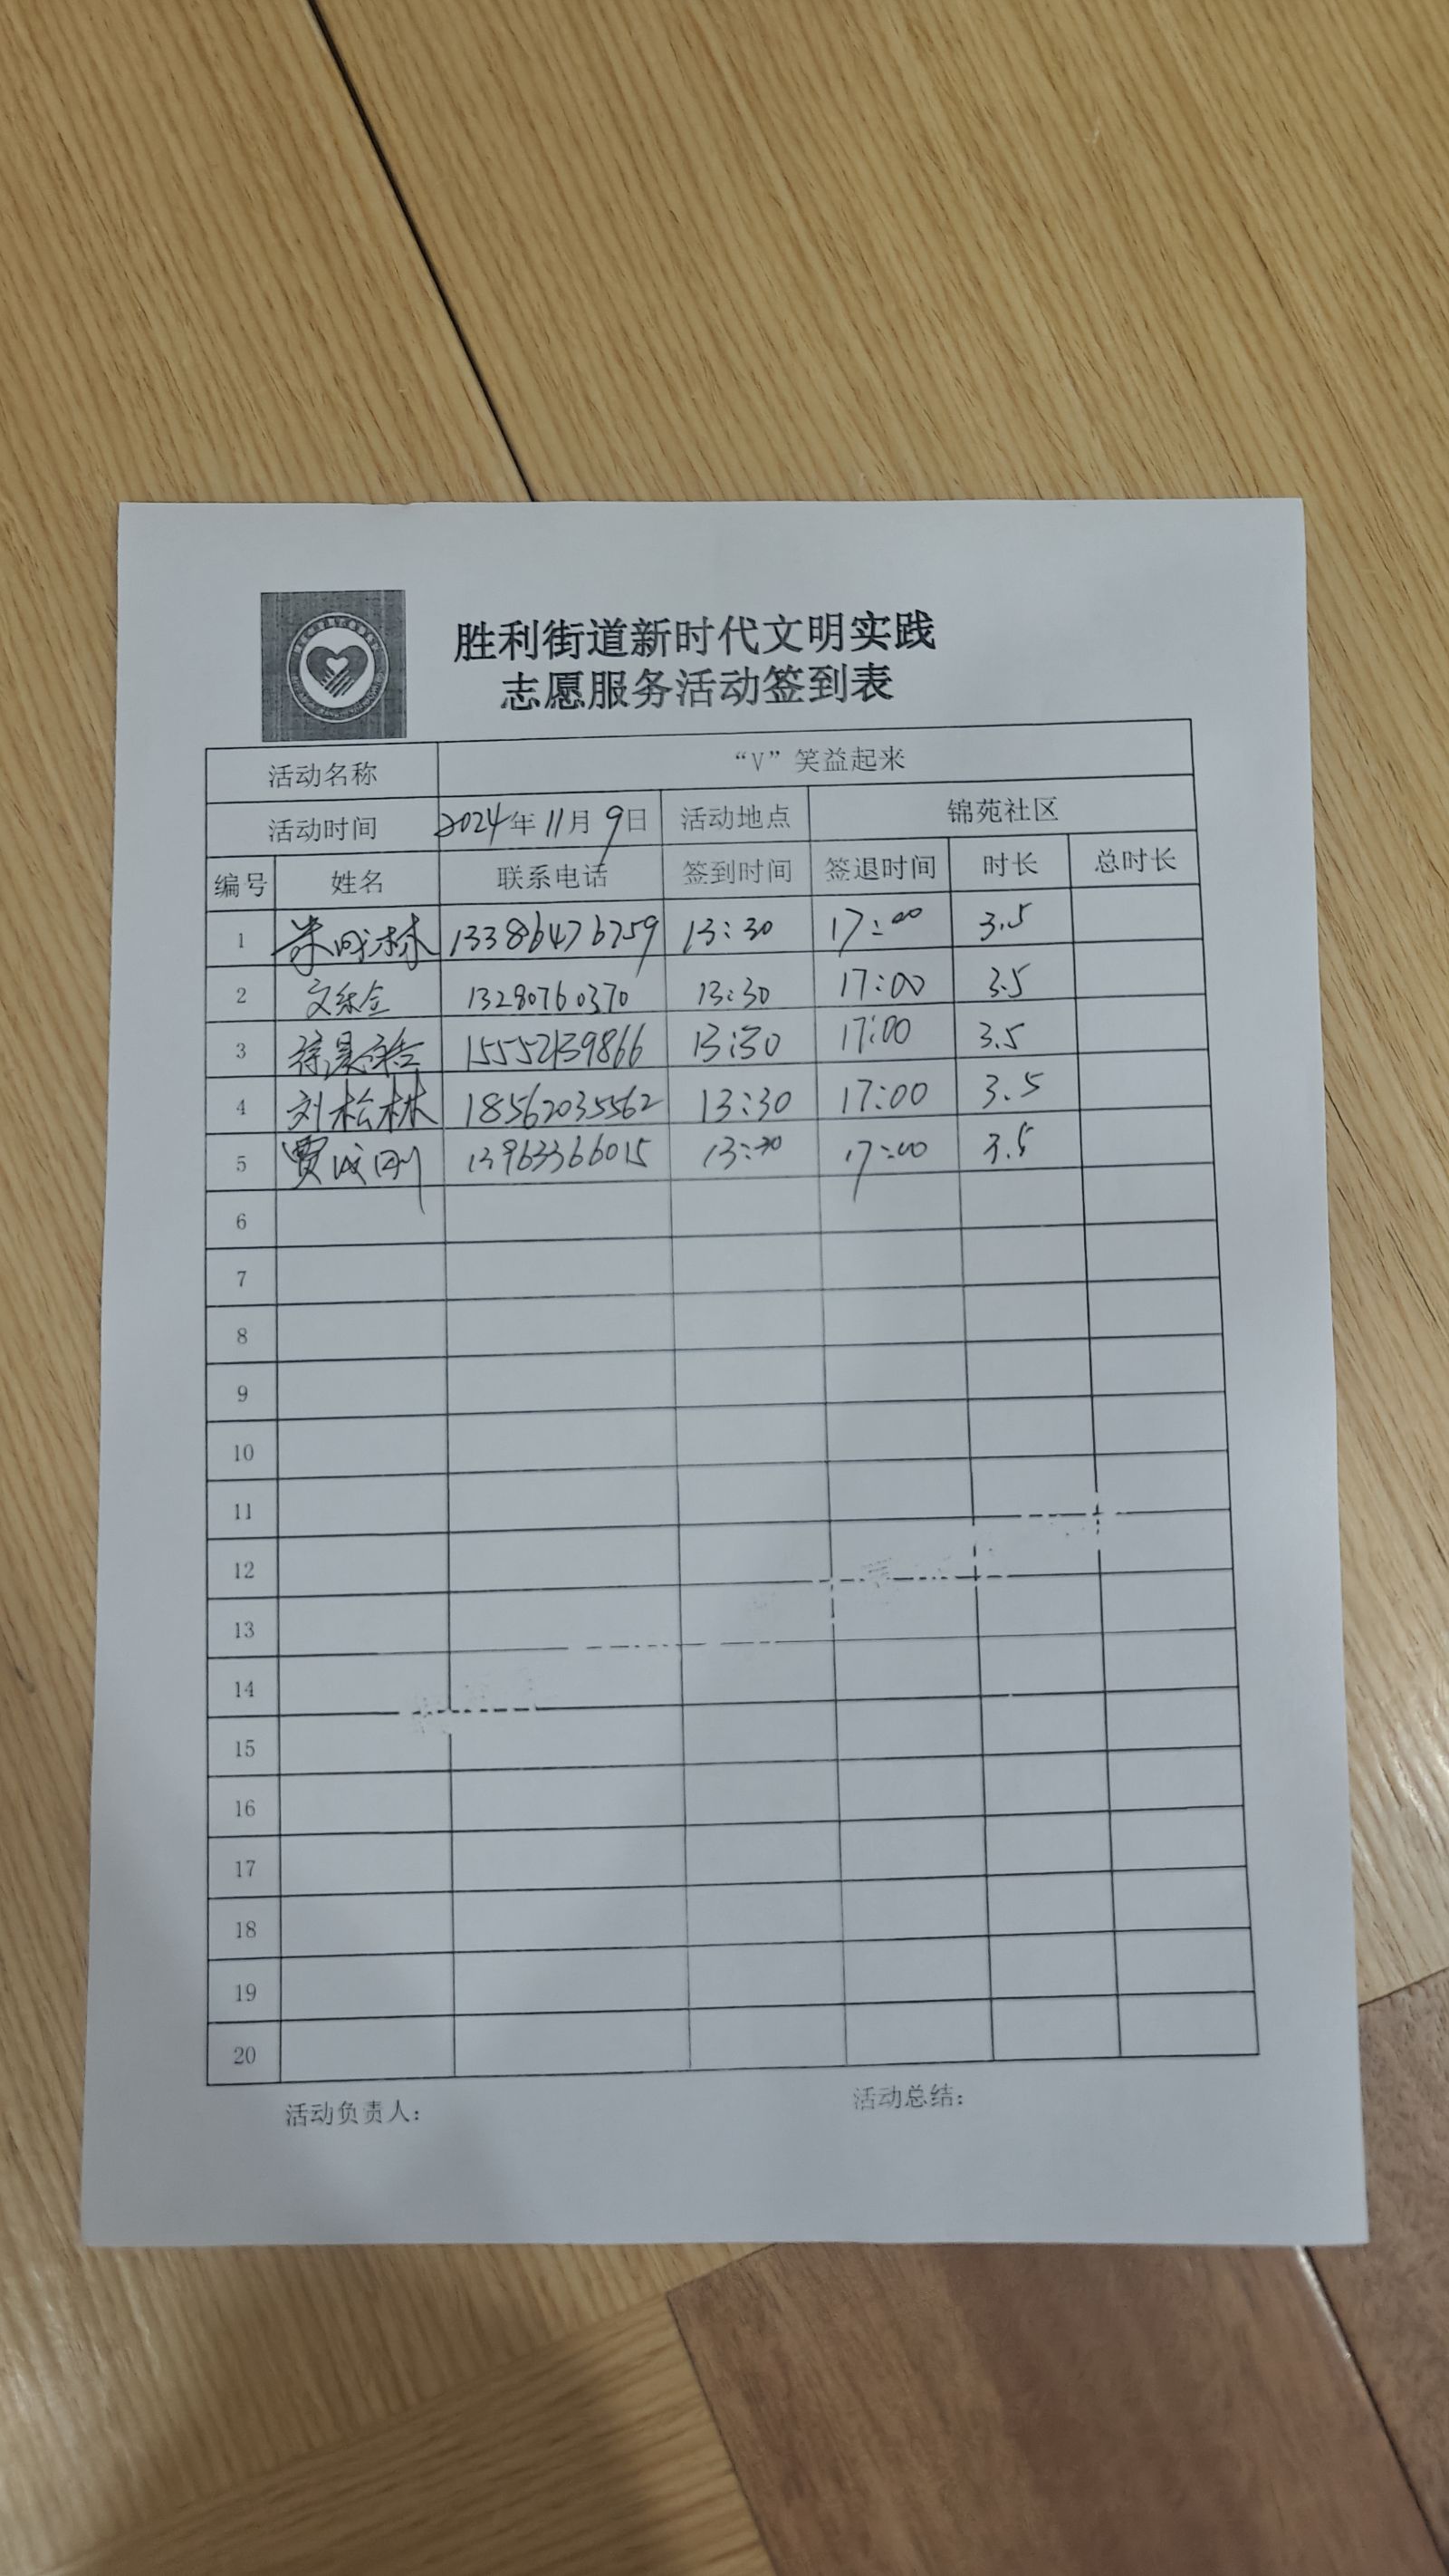 胜利街道新时代文明实践
志愿服务活动签到表
活动名称 “V”笑益起来
活动时间 2024年11月9日 活动地点 锦苑社区
编号 姓名 联系电话 签到时间 签退时间 时长 总时长
1 13386476759 13:30 17:00 3.5
2 13280760370 13:30 17:00 3.5
3 15552139866 13:30 17:00 3.5
4 刘松林 18562035562 13:30 17:00 3.5
5 贾成刚 13963366015 13:30 17:00 3.5
6
7
8
9
10
11
12
13
14
15
16
17
18
19
20
活动负责人： 活动总结：